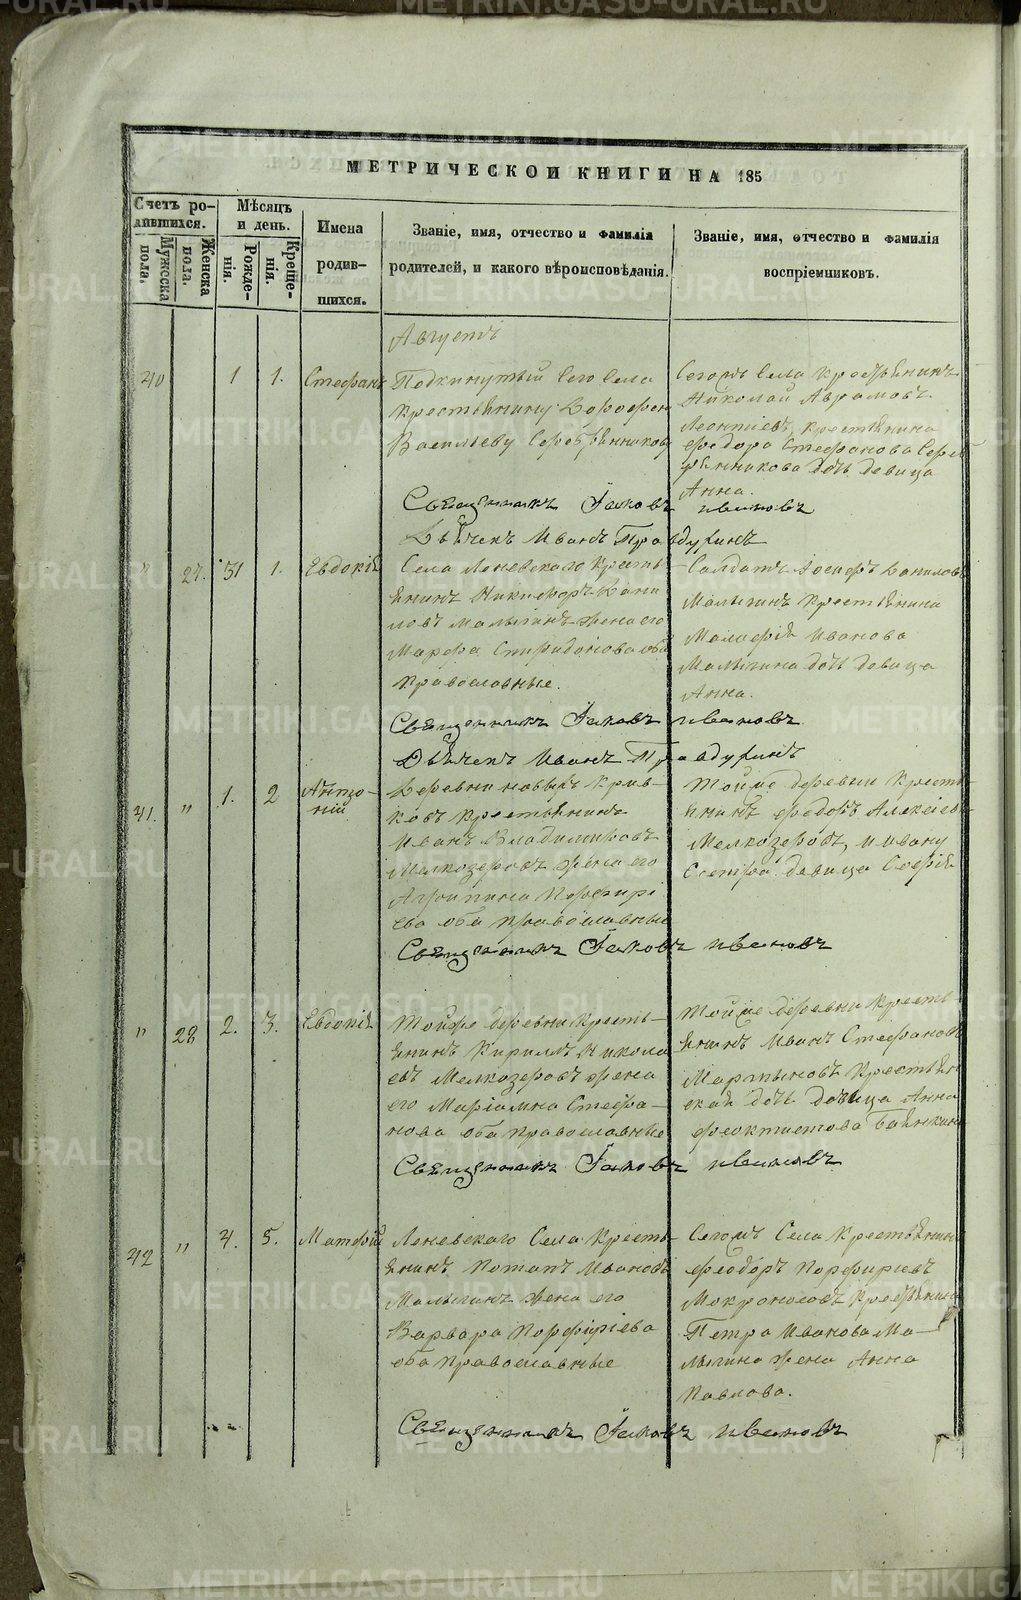 МЕТРИЧЕСКОЙ КНИГИ НА 185
Счетъ ро-
дившихся.
Мужеска
пола.
Женска
пола.
Мѣсяцъ
и день.
Рожде-
нія.
Креще-
нія.
Имена
родив-
шихся.
Званіе, имя, отчество и фамилія
родителей, и какого вѣроисповѣданія.
Званіе, имя, отчество и фамилія
воспріемниковъ.
Августъ
40 1 1. Стефанъ
Подкинутый сего села
крестьянину Дорофею
Васильеву Серебрянникову
Сегожъ Села крестьянинъ
Николай Аврамовъ
Леонтіевъ, крестьянина
Феодора Стефанова Сереб
рянникова дочь девица
Анна.
Священникъ Іаковъ Ивановъ
Дьячекъ Иванъ Правдухинъ
" 27. 31 1. Евдокія
Села Леневского кресть
янинъ Никифоръ Дани
ловъ Малыгинъ жена его
Марфа Спиридонова оба
православные.
Солдатъ Іосифъ Даниловъ
Малыгинъ крестьянина
Малафія Иванова
Малыгина дочь девица
Анна.
Священникъ Іаковъ Ивановъ
Дьячекъ Иванъ Правдухинъ
41. " 1. 2 Анто-
ній
Деревни новыхъ Крив-
ковъ крестьянинъ
Иванъ Владимировъ
Мелкозеровъ жена его
Агрипина Порфирі
ева оба православные
Тойже деревни кресть
янинъ Федоръ Алексіевъ
Мелкозеровъ, и Ивану
девица Софія
Священникъ Іаковъ Ивановъ
" 28 2. 3. Евдокія
Тойже деревни кресть-
янинъ Кириллъ Никола
евъ Мелкозеровъ жена
его Маріамна Стефа-
нова оба православные
Тойже деревни кресть-
янинъ Иванъ Стефановъ
Мартыновъ крестьян
ская дочь девица Анна
Феоктистова
Священникъ Іаковъ Ивановъ
42 " 4. 5. Матфій
Леневского Села кресть-
янинъ Потапъ Ивановъ
Малыгинъ жена его
Варвара Порфиріева
оба православные
Сегожъ Села крестьянинъ
Феодоръ Порфиріевъ
Мокроносовъ крестьянина
Петра Иванова Ма-
лыгина жена Анна
Павлова.
Священникъ Іаковъ Ивановъ
METRIKI.GASO-URAL.RU